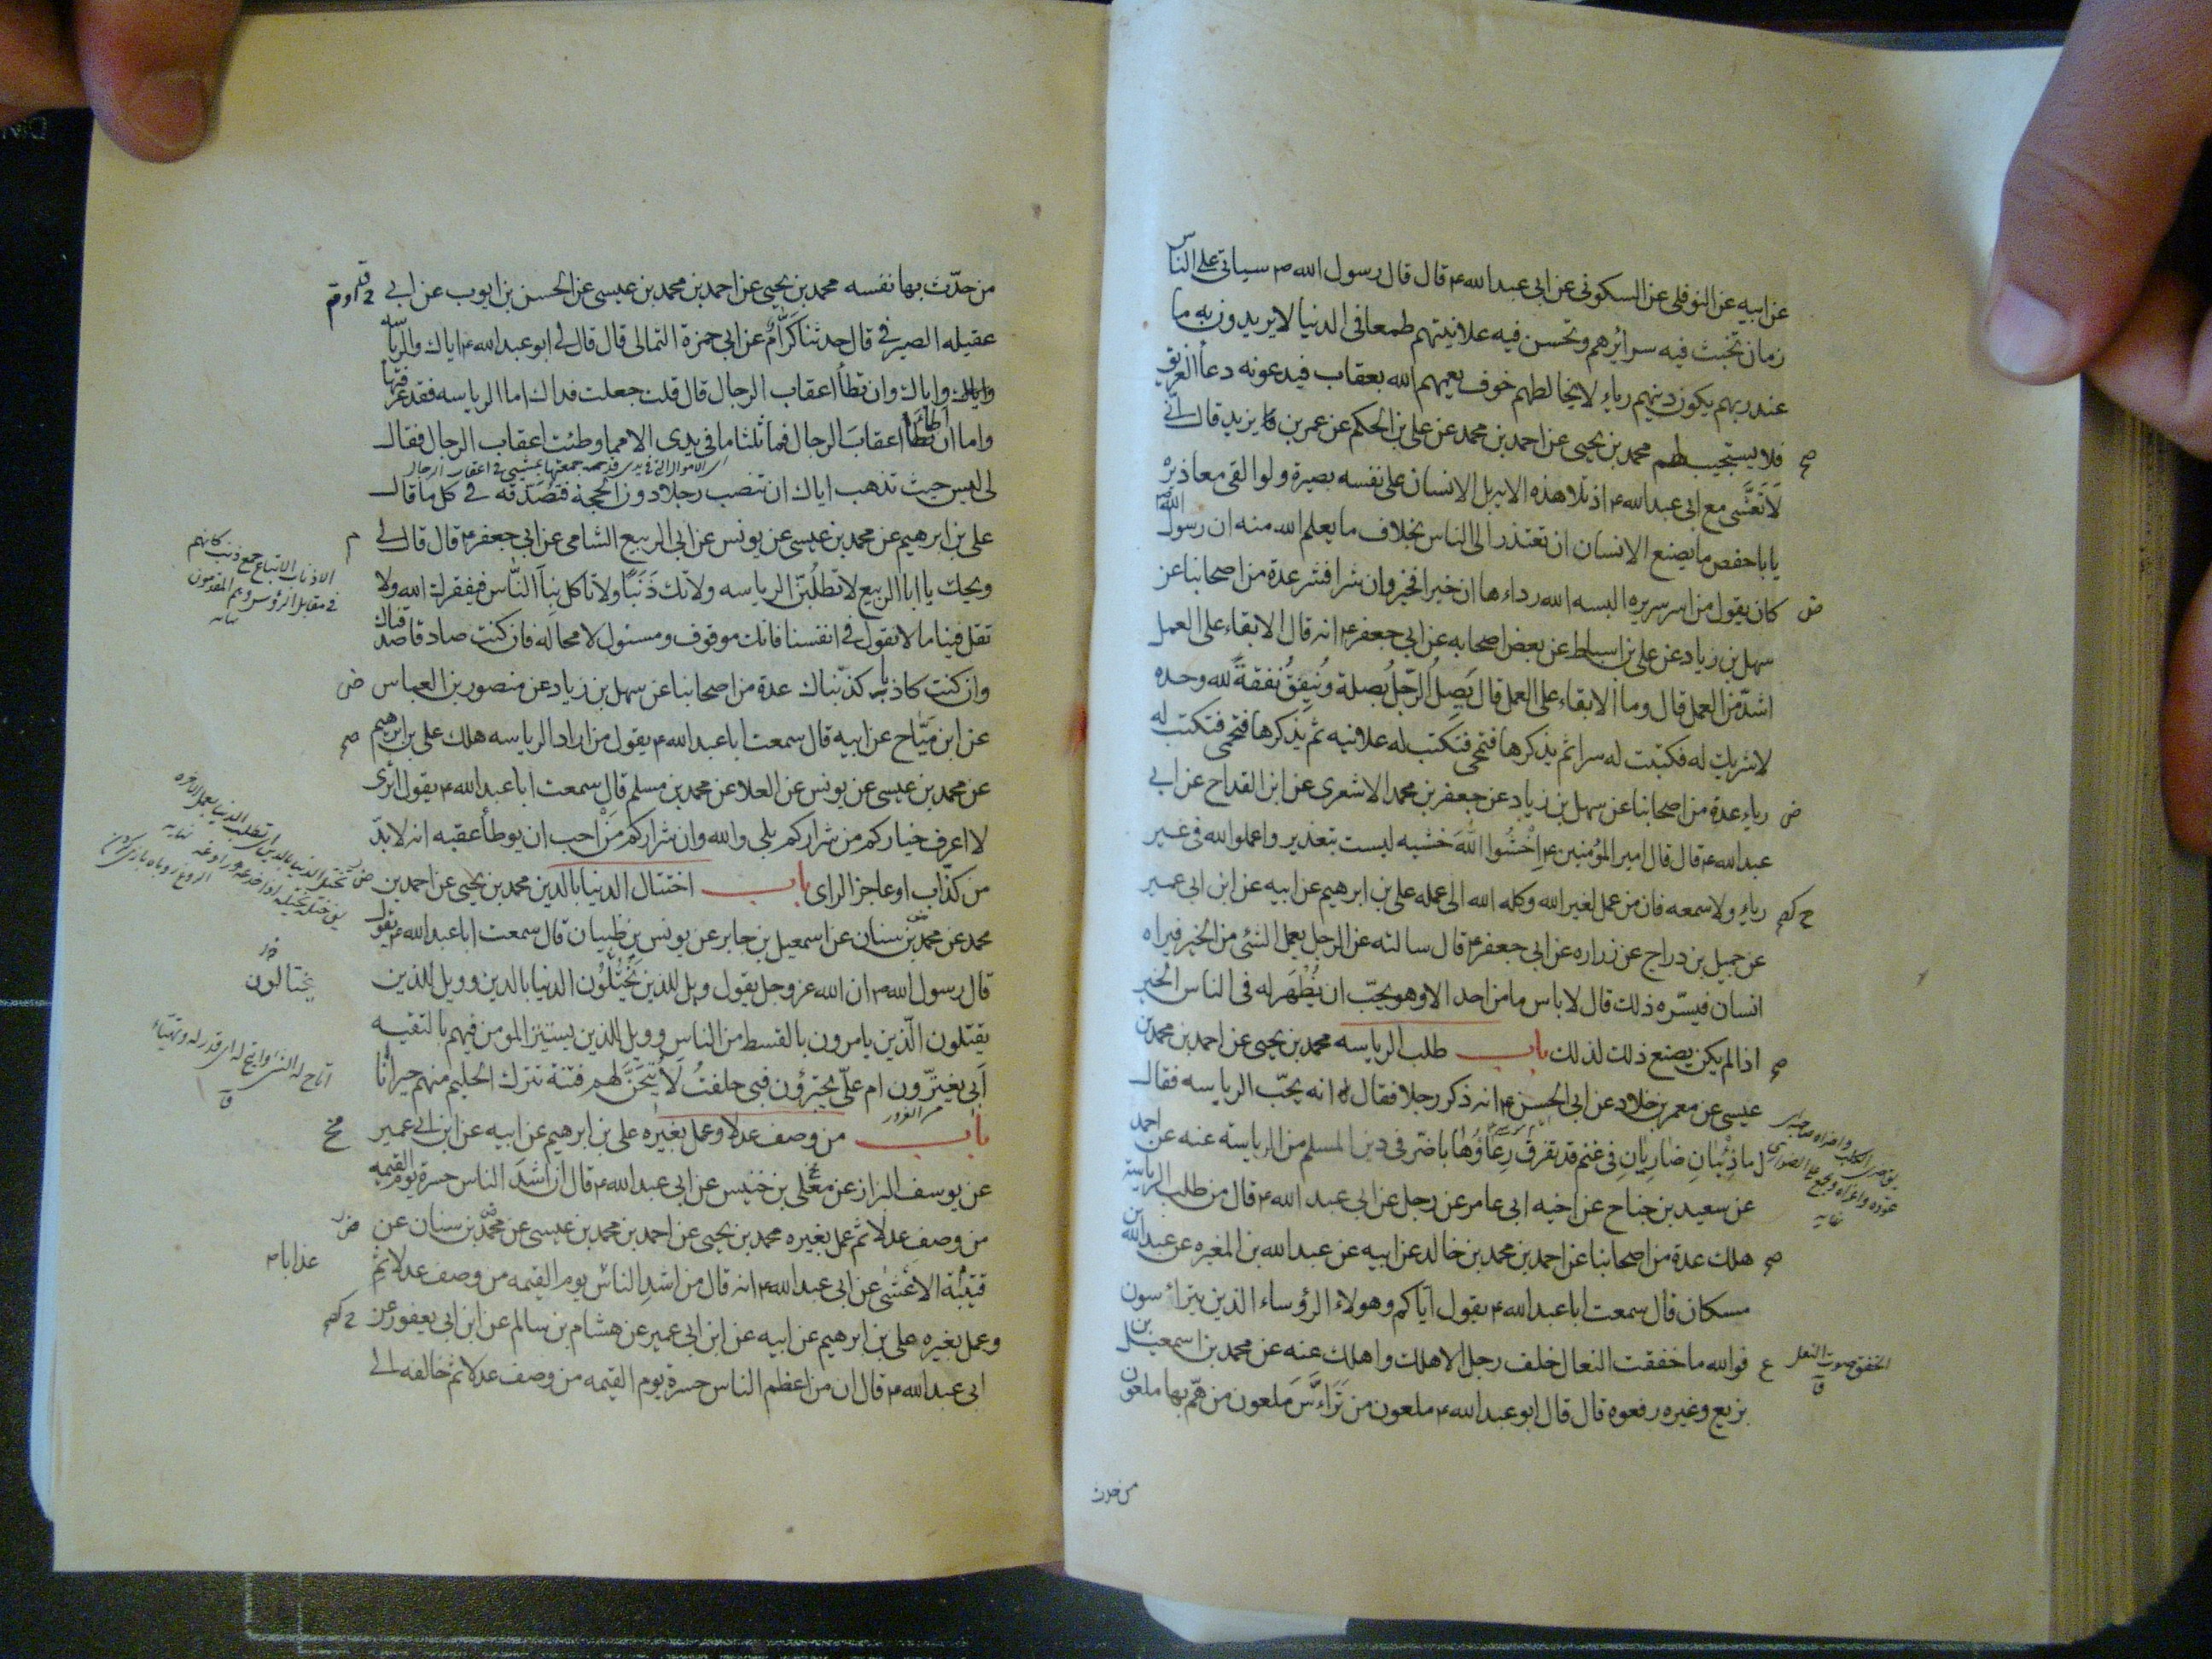 عن ابيه عن النوفلى عن السكونى عن ابى عبد الله ع قال قال رسول الله ص سياتى على الناس
زمان تخبث فيه سرائرهم وتحسن فيه علانيتهم طمعا فى الدنيا لا يريدون به ما
عند ربهم يكون دينهم رياء لا يخالطهم خوف يعمهم الله بعقاب فيدعونه دعاء الغريق
فلا يستجيب لهم محمد بن يحيى عن احمد بن محمد عن على بن الحكم عن عمر بن يزيد قال انى
لَاتَعَشَّى مع ابى عبد الله ع اذ تلا هذه الاية بل الانسان على نفسه بصيرة ولو القى معاذيره
يا با حفص ما يصنع الانسان ان تعتذر الى الناس بخلاف ما يعلم الله منه ان رسول الله ص
كان يقول من اسر سريره البسه الله رداءها ان خيرا فخير وان شرا فشر عدة من اصحابنا عن
سهل بن زياد عن على بن اسباط عن بعض اصحابه عن ابى جعفر ع انه قال الابقاء على العمل
اشدّ من العمل قال وما الابقاء على العمل قال يَصِلُ الرّجلُ بصلة ويُنفِقُ نفقةً لله وحده
لا شريك له فكتبت له سرا ثم يذكرها فتمحى فتكتب له علانيه ثم يذكرها فتمحى فتكتب له
رياء عدة من اصحابنا عن سهل بن زياد عن جعفر بن محمد الاشعرى عن ابن القداح عن ابى
عبد الله ع قال قال امير المؤمنين ع اِخْشَوا اللهَ خشيه ليست بتعذير واعملوا لله فى غير
رياء ولا سمعه فان من عمل لغير الله وكله الله الى عمله على بن ابرهيم عن ابيه عن ابن ابى عمير
عن جميل بن دراج عن زراره عن ابى جعفر ع قال سالته عن الرجل يعمل الشئ من الخير فيراه
انسان فيسّره ذلك قال لا باس ما من احد الا وهو يحبّ ان يُظْهَر له فى الناس الخير
اذا لم يكن يصنع ذلك لذلك باب طلب الرياسه محمد بن يحيى عن احمد بن محمد بن
عيسى عن معمر بن خلاد عن ابى الحسن ع انه ذكر رجلا فقال انه يحبّ الرياسه فقال
ما ذِئْبانِ ضارِيانِ فى غنم قد تفرق رِعاؤُها باضرّ فى دين المسلم من الرياسة عنه عن احمد
عن سعيد بن جناح عن اخيه ابى عامر عن رجل عن ابى عبد الله ع قال من طلب الرياسة
هلك عدة من اصحابنا عن احمد بن محمد بن خالد عن ابيه عن عبد الله بن المغيره عن عبد الله بن
مسكان قال سمعت ابا عبد الله ع يقول اياكم وهولاء الرؤساء الذين يترائسون
فوالله ما خفقت النعال خلف رجل الا هلك واهلك عنه عن محمد بن اسمعيل بن
بزيع وغيره رفعوه قال قال ابو عبد الله ع ملعون من تَرَأَّسَ ملعون من همّ بها ملعون
الخفق صوت النعل
ق
من حدث
من حدّث بها نفسه محمد بن يحيى عن احمد بن محمد بن عيسى عن الحسن بن ايوب عن ابى
عقيله الصيرفى قال حدثنا كَرَّام عن ابى حمزة الثمالى قال قال لى ابو عبد الله ع اياك والرياسه
واياك وان تطأ اعقاب الرجال قال قلت جعلت فداك اما الرياسه فقد عرفتها
واما ان اطأ اعقاب الرجال فما ثلثا ما فى يدى الا مما وطئت اعقاب الرجال فقال
لى ليس حيث تذهب اياك ان تنصب رجلا دون الحجة فتصدقه فى كل ما قال
على بن ابرهيم عن محمد بن عيسى عن يونس عن ابى الربيع الشامى عن ابى جعفر ع قال قال لى
ويحك يا ابا الربيع لا تطلُبَنّ الرياسه ولا تك ذَنَبًا ولا تاكل بنا الناس فيفقرك الله ولا
تقل فينا ما لا نقول فى انفسنا فانك موقوف ومسئول لا محاله فان كنت صادقا صدقناك
وان كنت كاذبا كذّبناك عدة من اصحابنا عن سهل بن زياد عن منصور بن العباس
عن ابن مَيّاح عن ابيه قال سمعت ابا عبد الله ع يقول من اراد الرياسه هلك على بن ابرهيم
عن محمد بن عيسى عن يونس عن العلا عن محمد بن مسلم قال سمعت ابا عبد الله ع يقول اترى
لا اعرف خياركم من شراركم بلى والله وان شراركم مَن احب ان يوطأ عقبه انه لا بدّ
من كذّاب او عاجز الراى باب اختتال الدنيا بالدين محمد بن يحيى عن احمد بن
محمد عن محمد بن سنان عن اسمعيل بن جابر عن يونس بن ظبيان قال سمعت ابا عبد الله ع يقول
قال رسول الله ص ان الله عز وجل يقول ويل للذين يَختِلُون الدنيا بالدين وويل للذين
يقتلون الّذين يامرون بالقسط من الناس وويل للذين يسير المومن فيهم بالتقيه
اَبى يغترّون ام علىّ يجترؤن فبى حلفتُ لَأُتِيحَنَّ لهم فتنة تترك الحليم منهم حيرانًا
من الغرور
باب من وصف عدلا وعمل بغيره على بن ابرهيم عن ابيه عن ابن ابى عمير
عن يوسف البزاز عن معلى بن خنيس عن ابى عبد الله ع قال ان اشدّ الناس حسرة يوم القيمه
من وصف عدلا ثم عمل بغيره محمد بن يحيى عن احمد بن محمد بن عيسى عن محمّد بن سنان عن
قتيبة الاعشى عن ابى عبد الله ع انه قال من اشد الناس يوم القيمه من وصف عدلا ثم
عذابا م
وعمل بغيره على بن ابرهيم عن ابيه عن ابن ابى عمير عن هشام بن سالم عن ابن ابى يعفور عن
ابى عبد الله ع قال ان من اعظم الناس حسرة يوم القيمه من وصف عدلا ثم خالفه الى
الاذناب الاتباع جمع ذنب كانهم
فى مقابل الرؤس وهم المقدمون
نهايه
يختالون
اتاح له الشئ اى قدر له وتهيّاء
ق